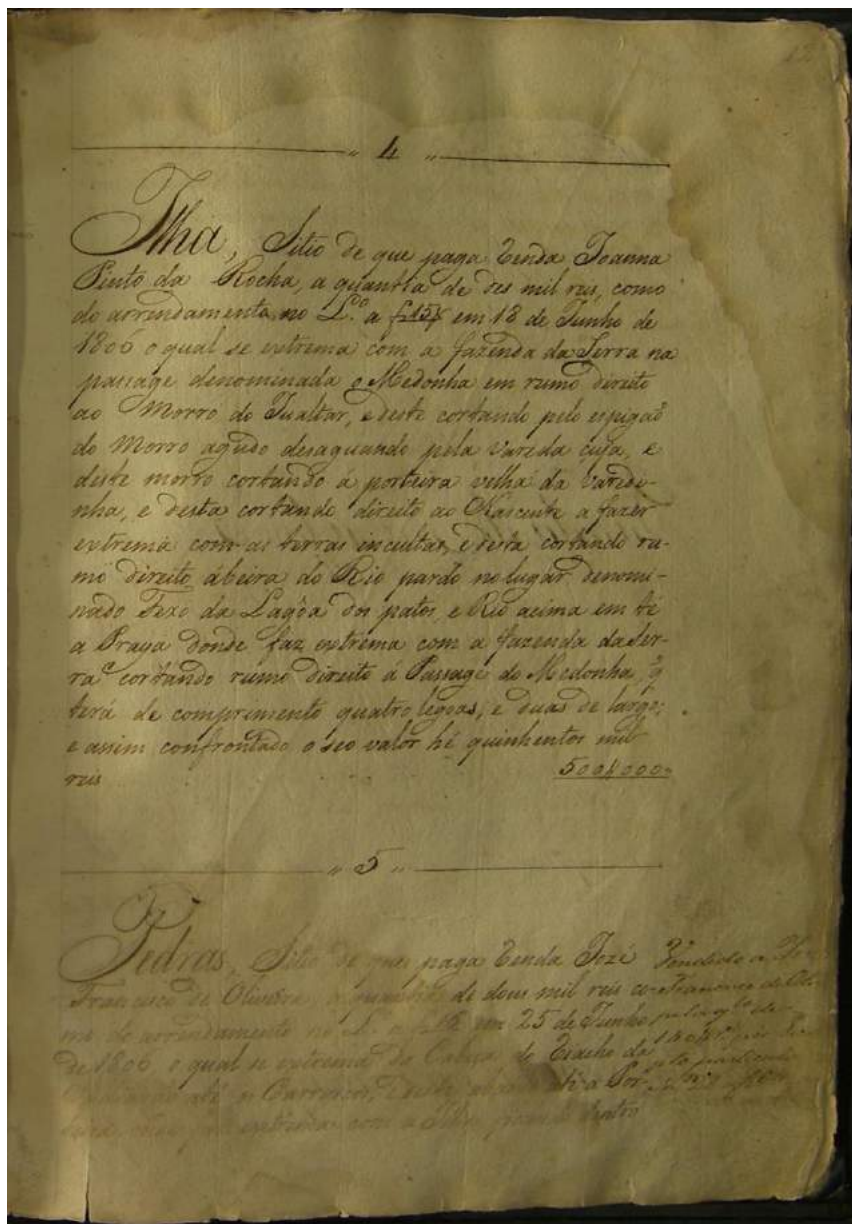 12
" 4 "
Ilha, Sitio de que paga Renda Joanna
Pinto da Rocha, a quantia de des mil reis, como
do arrendamento no L.º a f 157 em 18 de Junho de
1806 o qual se extrema com a fazenda da Serra na
passage denominada o Medonha em rumo direito
ao Morro do , e deste cortando pelo espigaõ
do Morro agudo desaguando pela Vareda cuja, e
deste morro cortando á porteira velha da Varedi-
nha, e desta cortando direito ao Nascente a fazer
extrema com as terras incultas, e desta cortando ru-
mo direito ábeira do Rio pardo no lugar denomi-
nado Fexo da Lagôa dos patos, e Rio acima em té
a Praya donde faz extrema com a fazenda da Ser-
ra cortando rumo direito á Passage do Medonha, q
terá de comprimento quatro legoas, e duas de largo;
e assim confrontado o seo valor hé quinhentos mil
reis 500$000
" 5 "
Pedras, Sitio de que paga Renda Jozé
Francisco de Oliveira, a quantia de dous mil reis co-
mo do arrendamento no L. a f 16 em 25 de Junho
de 1806 o qual se extrema do do Riacho da
até o Barroso, e deste
extrema com a Ilha dentro
Vendido a
Francisco de Oli